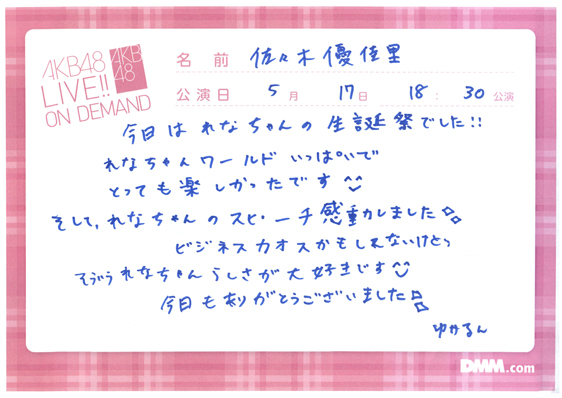 AKB48
LIVE!!
ON DEMAND
AKB
48
名前 佐々木優佳里
公演日 5月 17日 18:30公演
今日はれなちゃんの生誕祭でした!!
れなちゃんワールドいっぱいで
とっても楽しかったです
そして、れなちゃんのスピーチ感動しました
ビジネスカオスかもしれないけどっ
そういうれなちゃんらしさが大好きです
今日もありがとうございました
ゆかるん
DMM.com